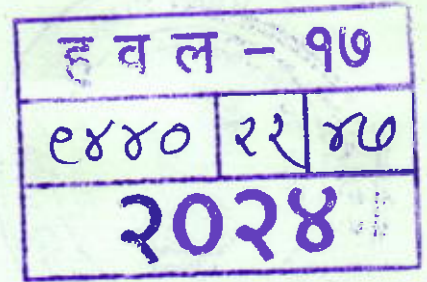 ह व ल - १७
९४४० २२ ४७
२०२४